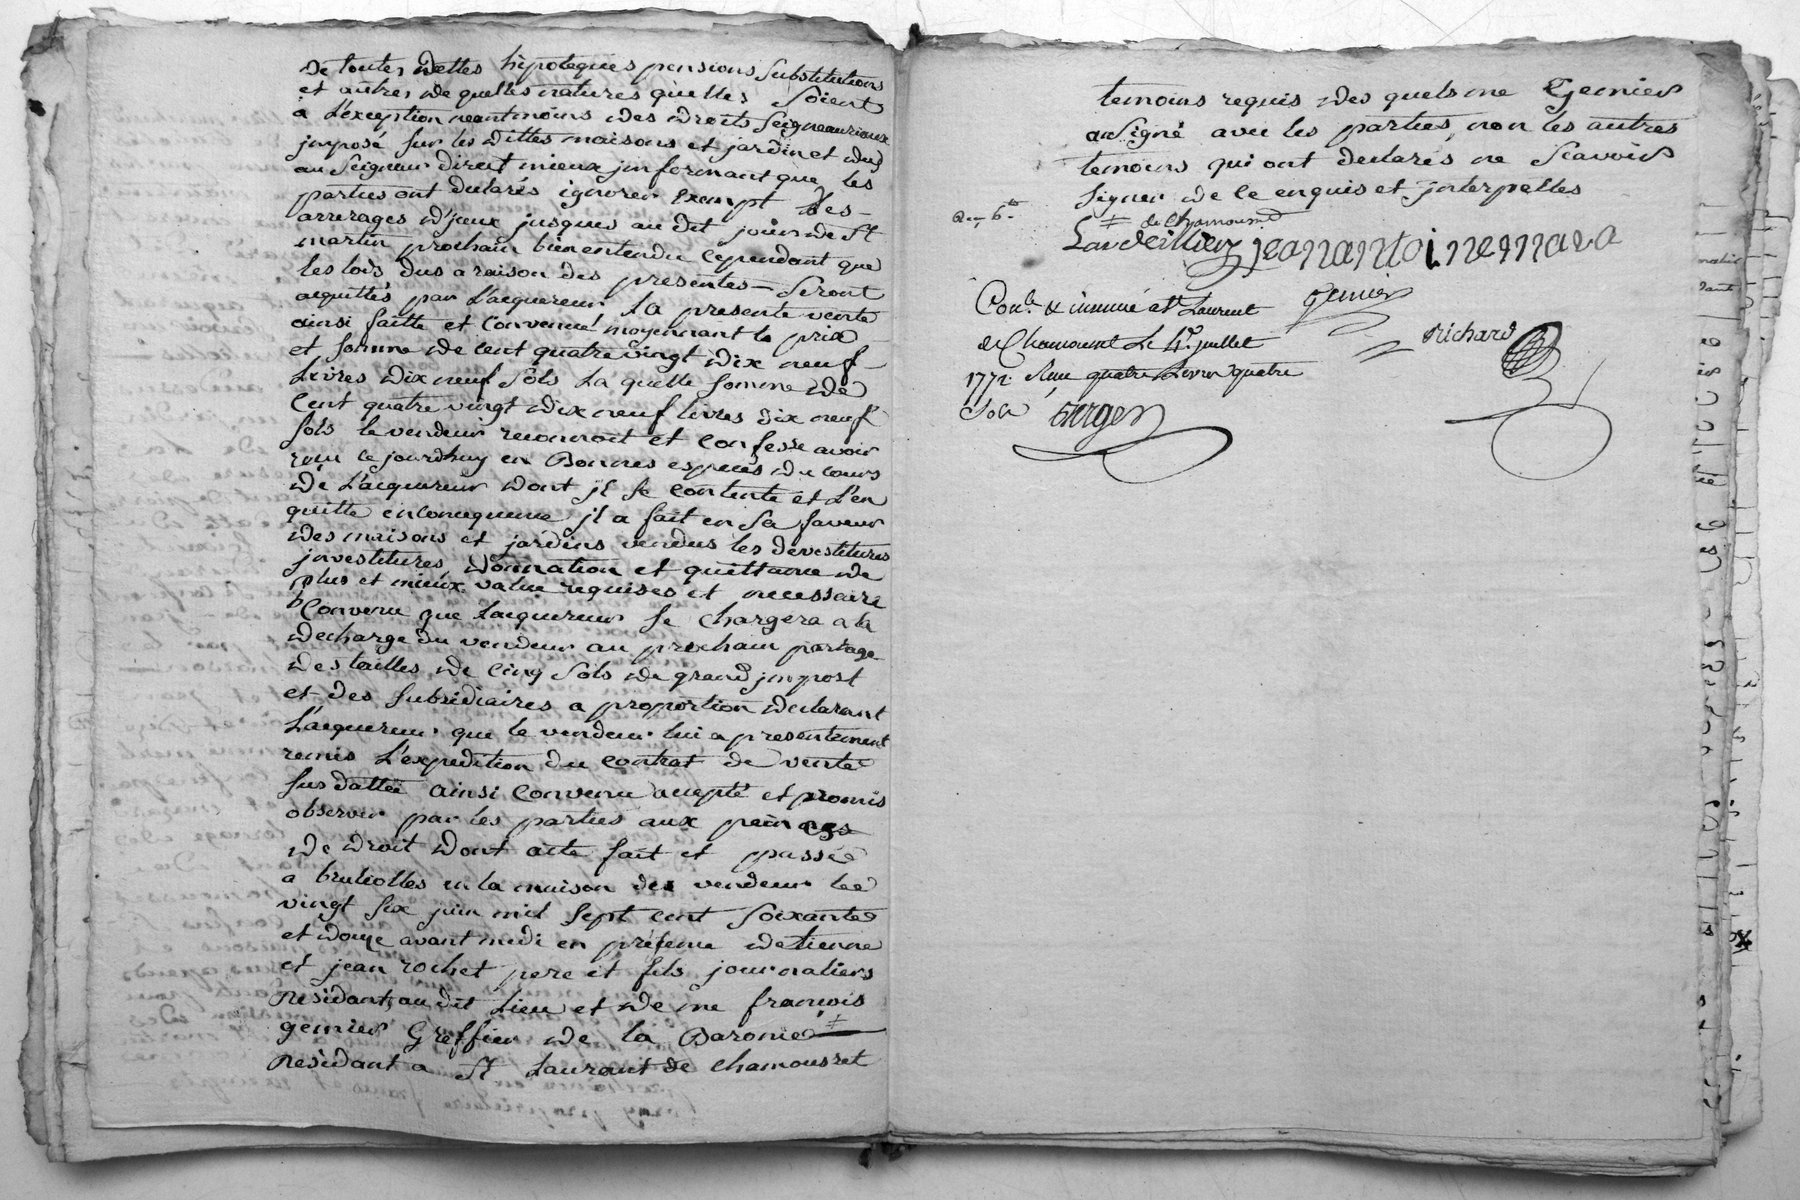 de toutes dettes hipoteques pensions substitutions
et autres de quelles natures quelles soient
a L'exception neantmoins des droits seigneuriaux
jmposé sur les dittes maisons et jardin et dus
au seigneur direct mieux jnformant que les
parties ont declarés ignorer exempt des
arrerages d'jeux jusques au dit jour de st
martin prochain bien entendu cependant que
les lods dus a raison des presentes seront
acquittés par L'acquereur La presente vente
ainsi faitte et convenue moyennant le prix
et somme de cent quatre vingt dix neuf
Livres dix neuf sols La quelle somme de
cent quatre vingt dix neuf livres dix neuf
sols le vendeur reconnoit et confesse avoir
recu ce jourdhuy en Bonnes especes du cours
de L'acquereur dont jl se contente et L'en
quitte en consequence jl a fait en sa faveur
des maisons et jardins vendus les devestitures
jnvestitures donnation et quittance de
plus et mieux value requises et necessaire
Convenu que Lacquereur se chargera a la
decharge du vendeur au prochain partage
des tailles de cinq sols de grand jmpost
et des subsidiaires a proportion declarant
L'acquereur que le vendeur lui a presentement
remis L'expedition du contrat de vente
sus dattée ainsi convenu accepté et promis
observer par les parties aux peines
de droit dont acte fait et passée
a brullolles en la maison des vendeur lee
vingt six juin mil sept cent soixante
et douze avant midi en présence detienne
et jean rochet pere et fils journaliers
Residants au dit Lieu et de me francois
gemier Greffier de la Baronie ‡
Residant a st Laurant de chamousset
temoins requis des quels me Gemier
a signé avec les parties non les autres
temoins qui ont declarés ne scavoir
signer de ce enquis et jnterpellés
‡ de Chamousset
jean antoine mara
gemier
Richard
Con.le & insinué a st Laurent
de Chamousset Le 4e. juillet
1772. Recu quatre Livres quatre
Sols